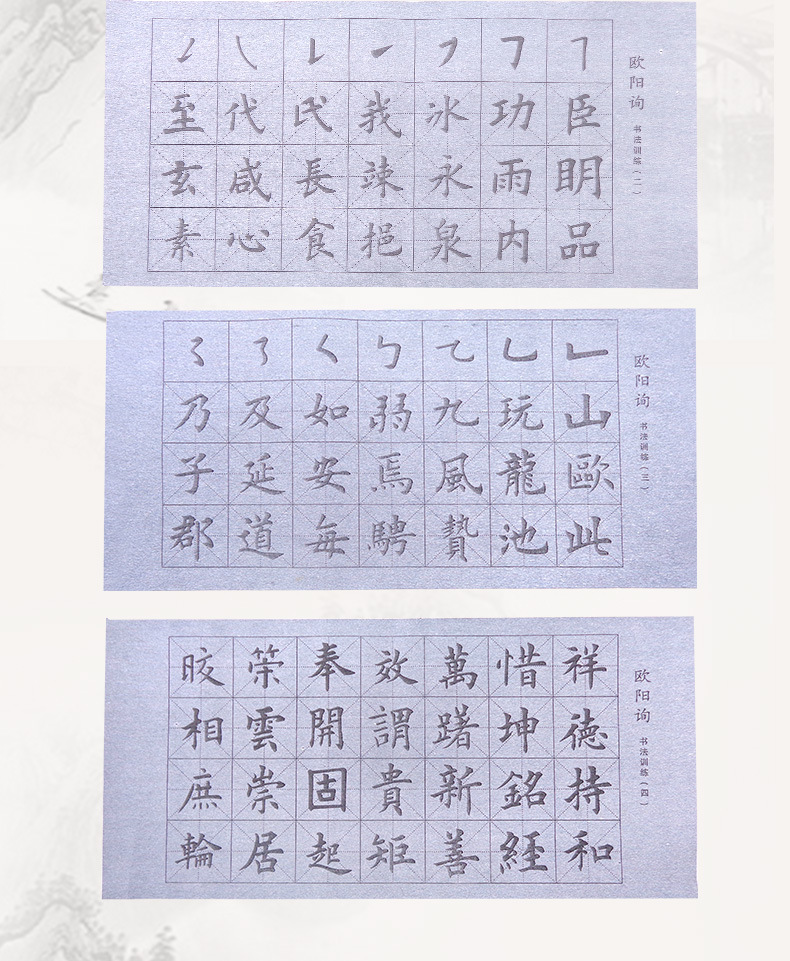 欧阳询
书法训练(二)
臣眀品
功雨内
冰永泉
我竦挹
氏長食
代咸心
至玄素
欧阳询
书法训练(三)
山歐此
玩龍池
九風贄
弱焉騁
如安每
及延道
乃子郡
欧阳询
书法训练(四)
祥徳持和
惜坤銘經
萬躇新善
效謂貴矩
奉開固起
雲崇居
晈相庶輪